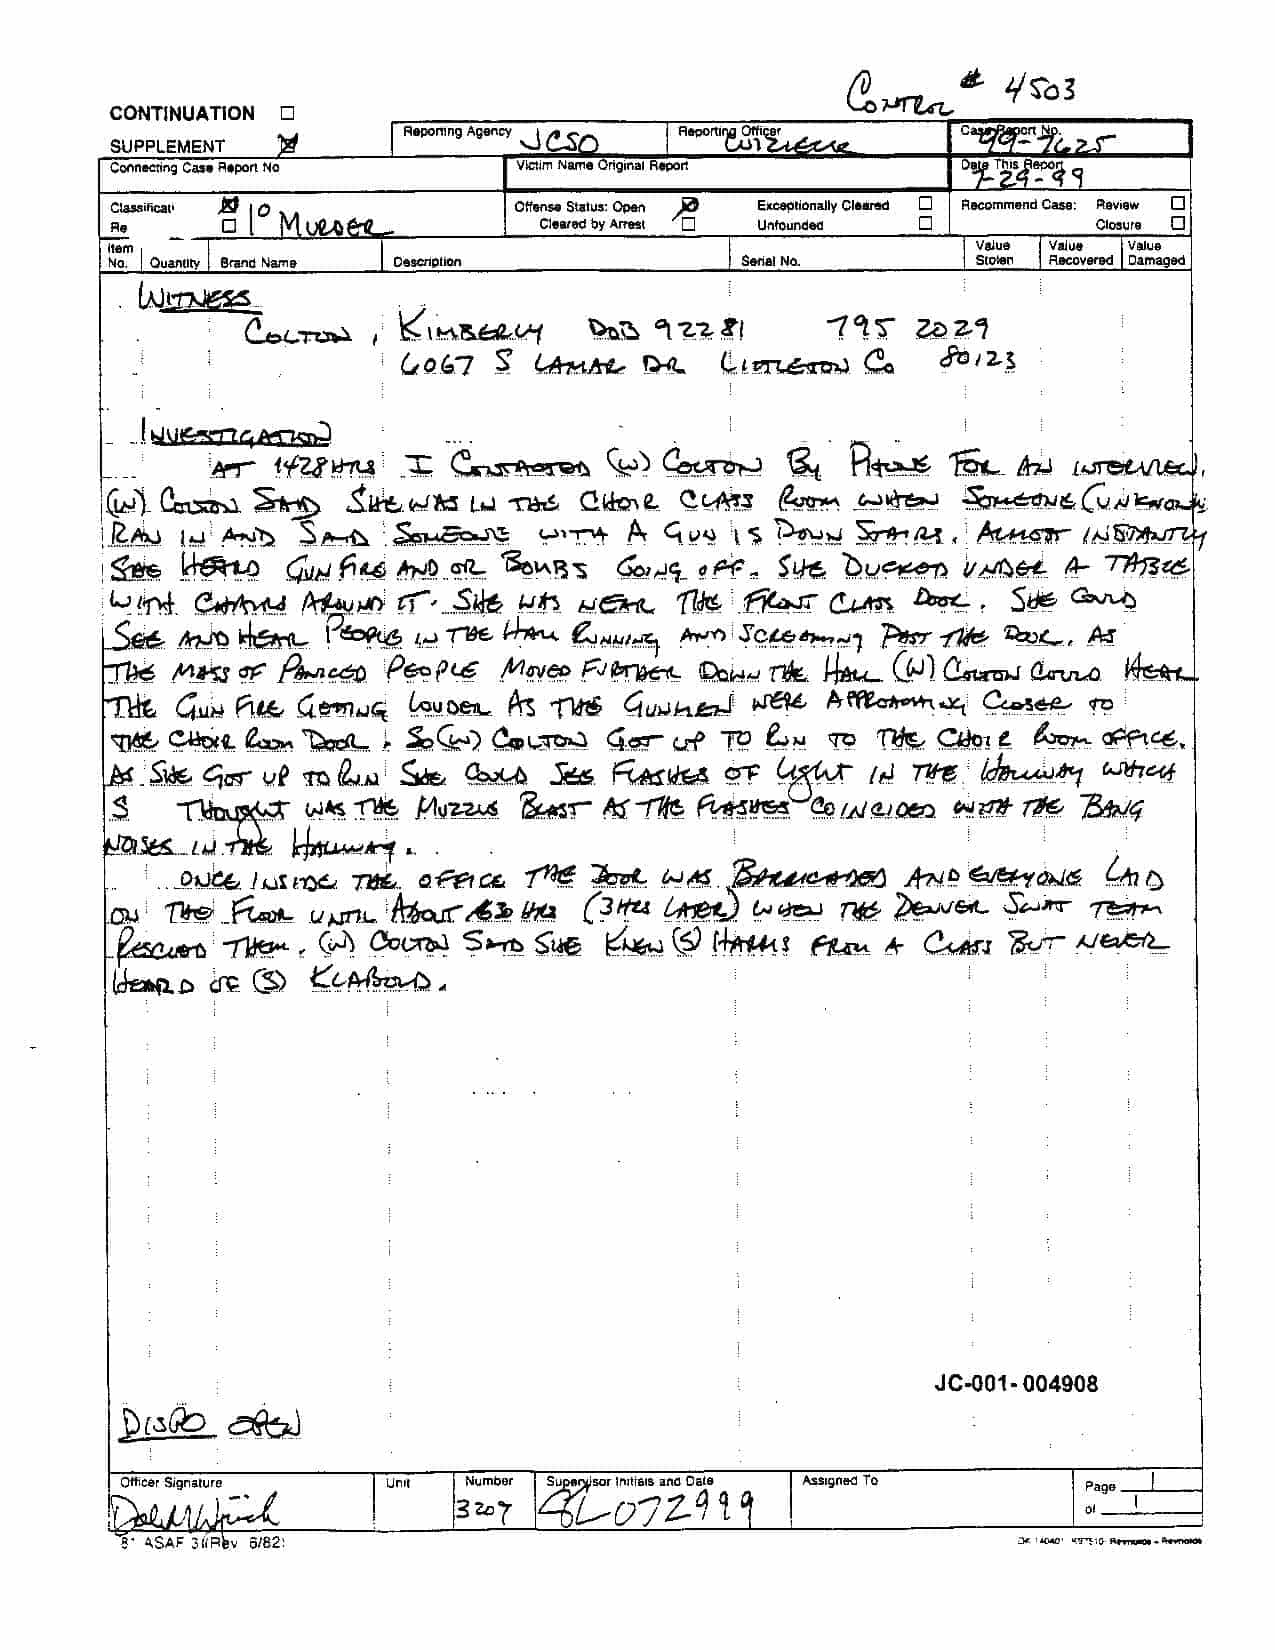 CONTROL # 4503
CONTINUATION
SUPPLEMENT
Reporting Agency JCSO
Reporting Officer
Case Report No. 99-7625
Connecting Case Report No
Victim Name Original Report
Date This Report 7-29-99
Classificati 1° MURDER
Re
Offense Status: Open
Cleared by Arrest
Exceptionally Cleared
Unfounded
Recommend Case: Review
Closure
Item No. Quantity Brand Name Description Serial No. Value Stolen Value Recovered Value Damaged
WITNESS
COLTON, KIMBERLY DOB 92281 795 2029
6067 S LAMAR DR LITTLETON CO 80123
INVESTIGATION
AT 1428 HRS I CONTACTED (W) COLTON BY PHONE FOR AN INTERVIEW.
(W) COLTON SAID SHE WAS IN THE CHOIR CLASS ROOM WHEN SOMEONE (UNKNOWN)
RAN IN AND SAID SOMEONE WITH A GUN IS DOWN STAIRS. ALMOST INSTANTLY
SHE HEARD GUN FIRE AND OR BOMBS GOING OFF. SHE DUCKED UNDER A TABLE
WITH CHAIRS AROUND IT. SHE WAS NEAR THE FRONT CLASS DOOR. SHE COULD
SEE AND HEAR PEOPLE IN THE HALL RUNNING AND SCREAMING PAST THE DOOR. AS
THE MASS OF PANICED PEOPLE MOVED FURTHER DOWN THE HALL (W) COLTON COULD HEAR
THE GUN FIRE GETTING LOUDER AS THE GUNMEN WERE APPROACHING CLOSER TO
THE CHOIR ROOM DOOR. SO (W) COLTON GOT UP TO RUN TO THE CHOIR ROOM OFFICE.
AS SHE GOT UP TO RUN SHE COULD SEE FLASHES OF LIGHT IN THE HALLWAY WHICH
S THOUGHT WAS THE MUZZLE BLAST AS THE FLASHES COINCIDED WITH THE BANG
NOISES IN THE HALLWAY.
ONCE INSIDE THE OFFICE THE DOOR WAS BARRICADED AND EVERYONE LAID
ON THE FLOOR UNTIL ABOUT HRS (3 HRS LATER) WHEN THE DENVER SWAT TEAM
RESCUED THEM. (W) COLTON SAID SHE KNEW (S) HARRIS FROM A CLASS BUT NEVER
HEARD OF (S) KLABOLD.
JC-001-004908
DISPO OPEN
Officer Signature Unit Number 3207 Supervisor Initials and Date 072999 Assigned To Page 1 of 1
ASAF 3 (Rev 6/82)